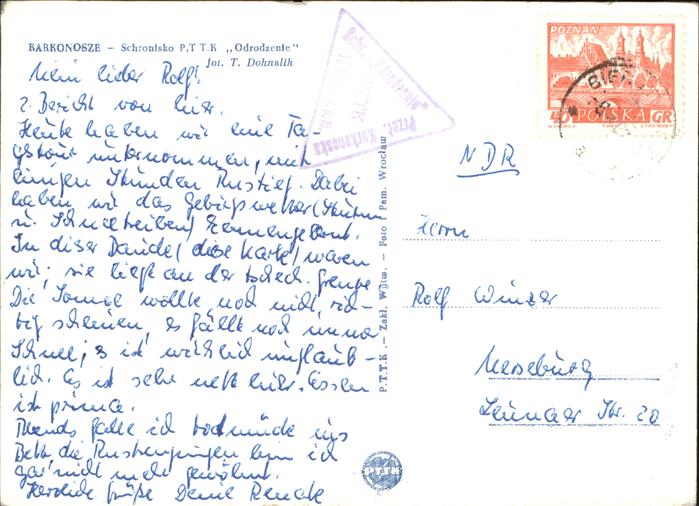 KARKONOSZE – Schronisko P.T.T.K „Odrodzenie"
fot. T. Dohnalik
Mein lieber Rolf!
2. Bericht von hier.
Heute haben wir eine Ta-
gestour unternommen, mit
einigen Stunden Anstieg. Dabei
haben wir das Gebirgswetter (Sturm
u. Schneetreiben) kennengelernt.
In dieser Baude (diese Karte) waren
wir; sie liegt an der tschech. Grenze
Die Sonne wollte noch nicht rich-
tig scheinen, es fällt noch immer
Schnee; es ist wirklich unglaub-
lich. Es ist sehr nett hier. Essen
ist prima.
Abends falle ich todmüde ins
Bett, die Anstrengungen bin ich
gar nicht mehr gewöhnt.
Herzliche Grüße Deine Renate
Schr. „Odrodzenie"
PTTK
Przeł. Karkonoska
P.T.T.K. – Zakł. Wytw. – Foto – Pam. Wrocław
PTTK
POZNAŃ
40 POLSKA GR
NDR
Herrn
Rolf Winzer
Merseburg
Leunaer Str. 20